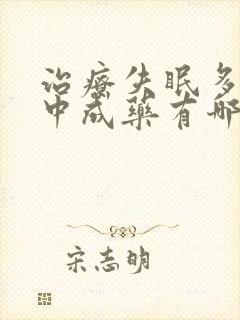 治疗失眠多
中成药有哪
宋志明